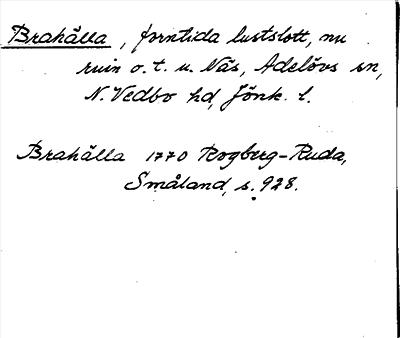 Brahälla, forntida lustslott, nu
ruin o. t. u. Näs, Adelövs sn,
N. Vedbo hd, Jönk. l.
Brahälla 1770 Rogberg-Ruda,
Småland, s. 928.